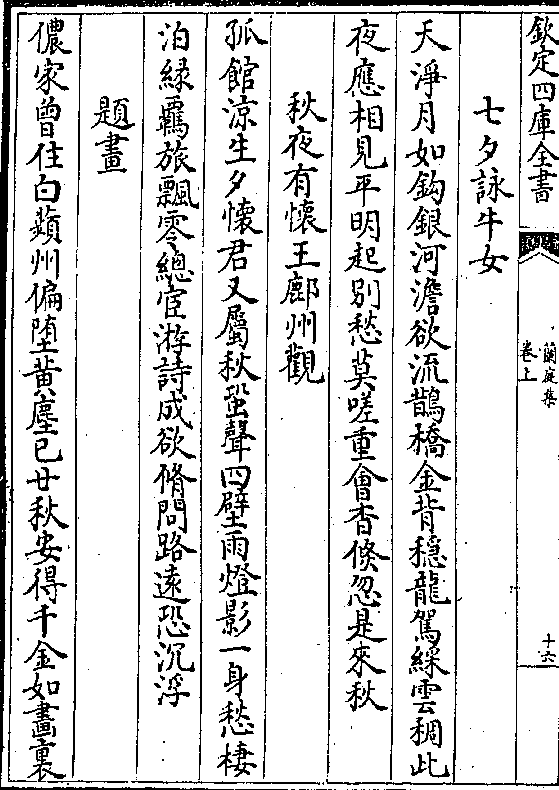 欽定四庫全書
蘭庭集
卷上
十六
七夕詠牛女
天淨月如鈎銀河澹欲流鵲橋金背穩龍駕綵雲稠此
夜應相見平明起别愁莫嗟重會杳倐忽是來秋
秋夜有懷王鄜州觀
孤館涼生夕懷君又屬秋蛩聲四壁雨燈影一身愁棲
泊緑羈旅飄零總宦遊詩成欲脩問路遠恐沉浮
題畫
儂家曾住白蘋州偏墮黄塵已廿秋安得千金如畫裏